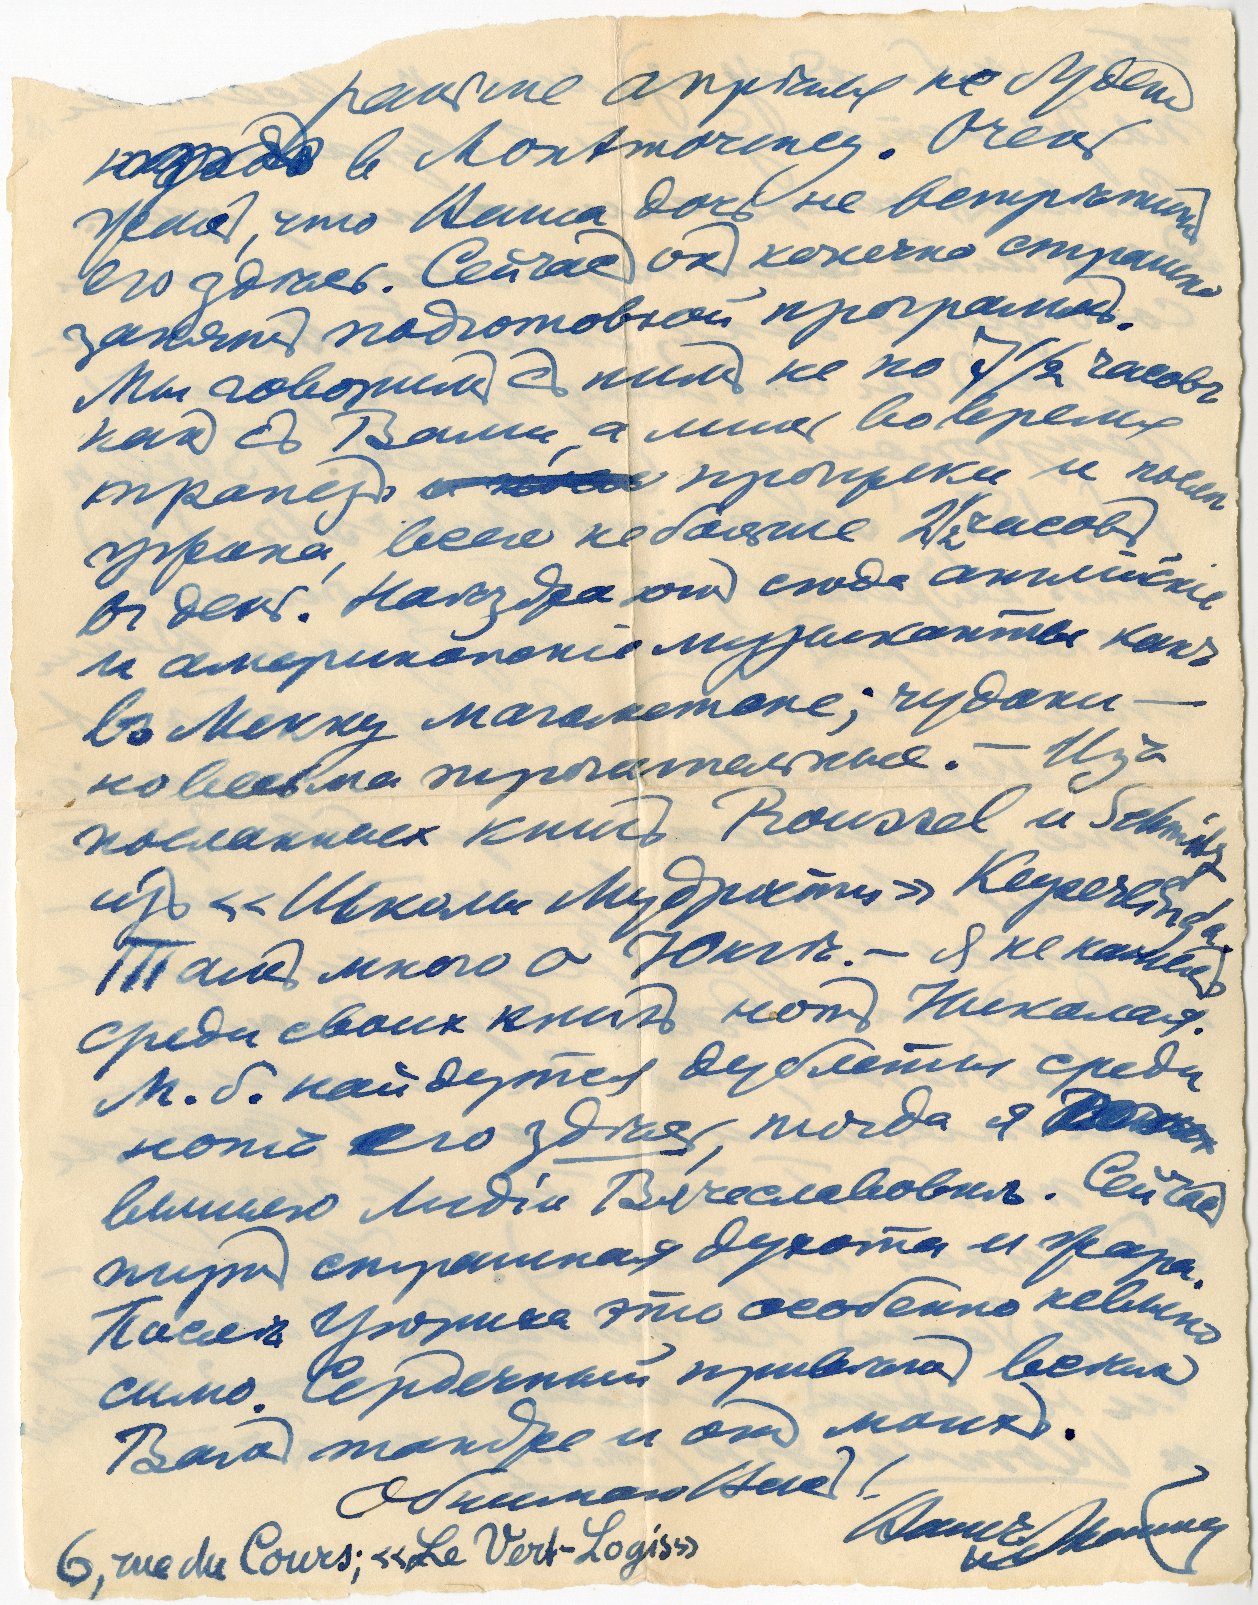 раньше апрѣля не будетъ
въ Монтморенси. Очень
жаль, что Ваша дочь не встрѣтитъ
его здѣсь. Сейчас он конечно страшно
занятъ подготовкой програмъ.
Мы говоримъ съ нимъ не по 7 1/2 часовъ
какъ съ Вами, а лишь во время
трапезъ прогулки и послѣ
ужина, всего не больше 2 1/2 часовъ
въ день. Наѣзжаютъ сюда английскіе
и американскіе музыканты какъ
въ Мекку магометане; чудаки —
но весьма трогательные. — Изъ
посланныхъ книгъ Roussel и Schmitz
изъ «Школы Мудрости» Keyserling'а.
Тамъ много о Юнгѣ. — Я не нашелъ
среди своихъ книгъ нотъ Николая.
М. б. найдутся дублеты среди
нотъ его здѣсь, тогда я
вышлю Лидіи Вячеславовнѣ. Сейчас
тутъ страшная духота и жара.
Послѣ Цюриха это особенно невыно
симо. Сердечный привѣтъ всѣмъ
Вамъ также и отъ моихъ.
Обнимаю Васъ!
Вашъ
6, rue du Cours; «Le Vert-Logis»